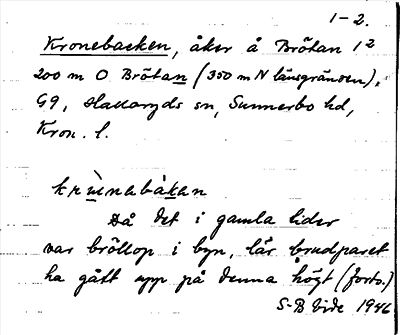 1-2.
Kronebacken, åker å Brötan 1²
200 m O Brötan (350 m N länsgränsen),
G9, Hallaryds sn, Sunnerbo hd,
Kron. l.
krùnebàkan
Då det i gamla tider
var bröllop i byn, lär brudparet
ha gått upp på denna högt (forts.)
S-B Vide 1946